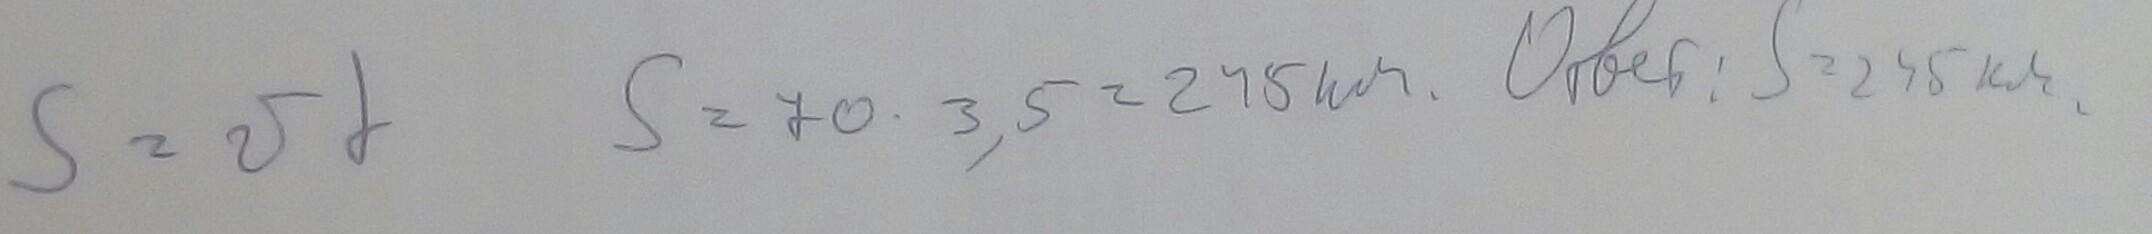 S = vt S = 70 · 3,5 = 245 км. Ответ: S = 245 км.